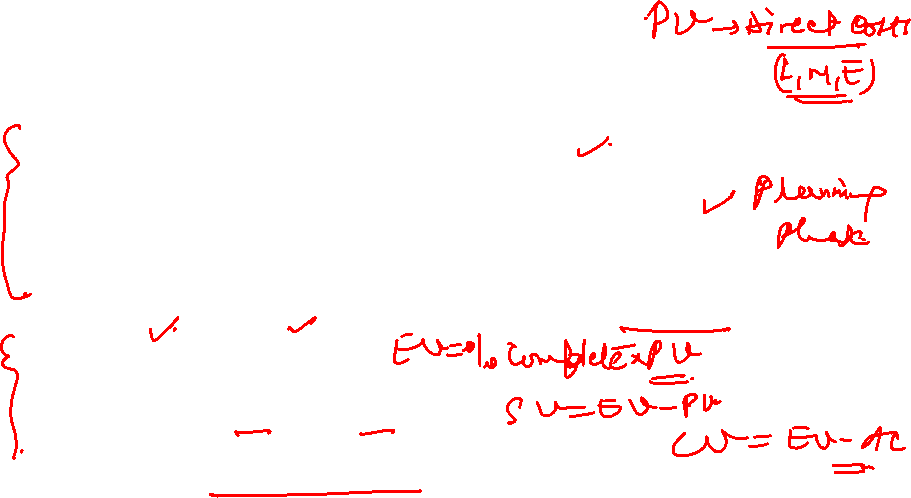 PV → Direct costs
(L, M, E)
✓ Planning
phase
EV = % complete x PV
SV = EV - PV
CV = EV - AC